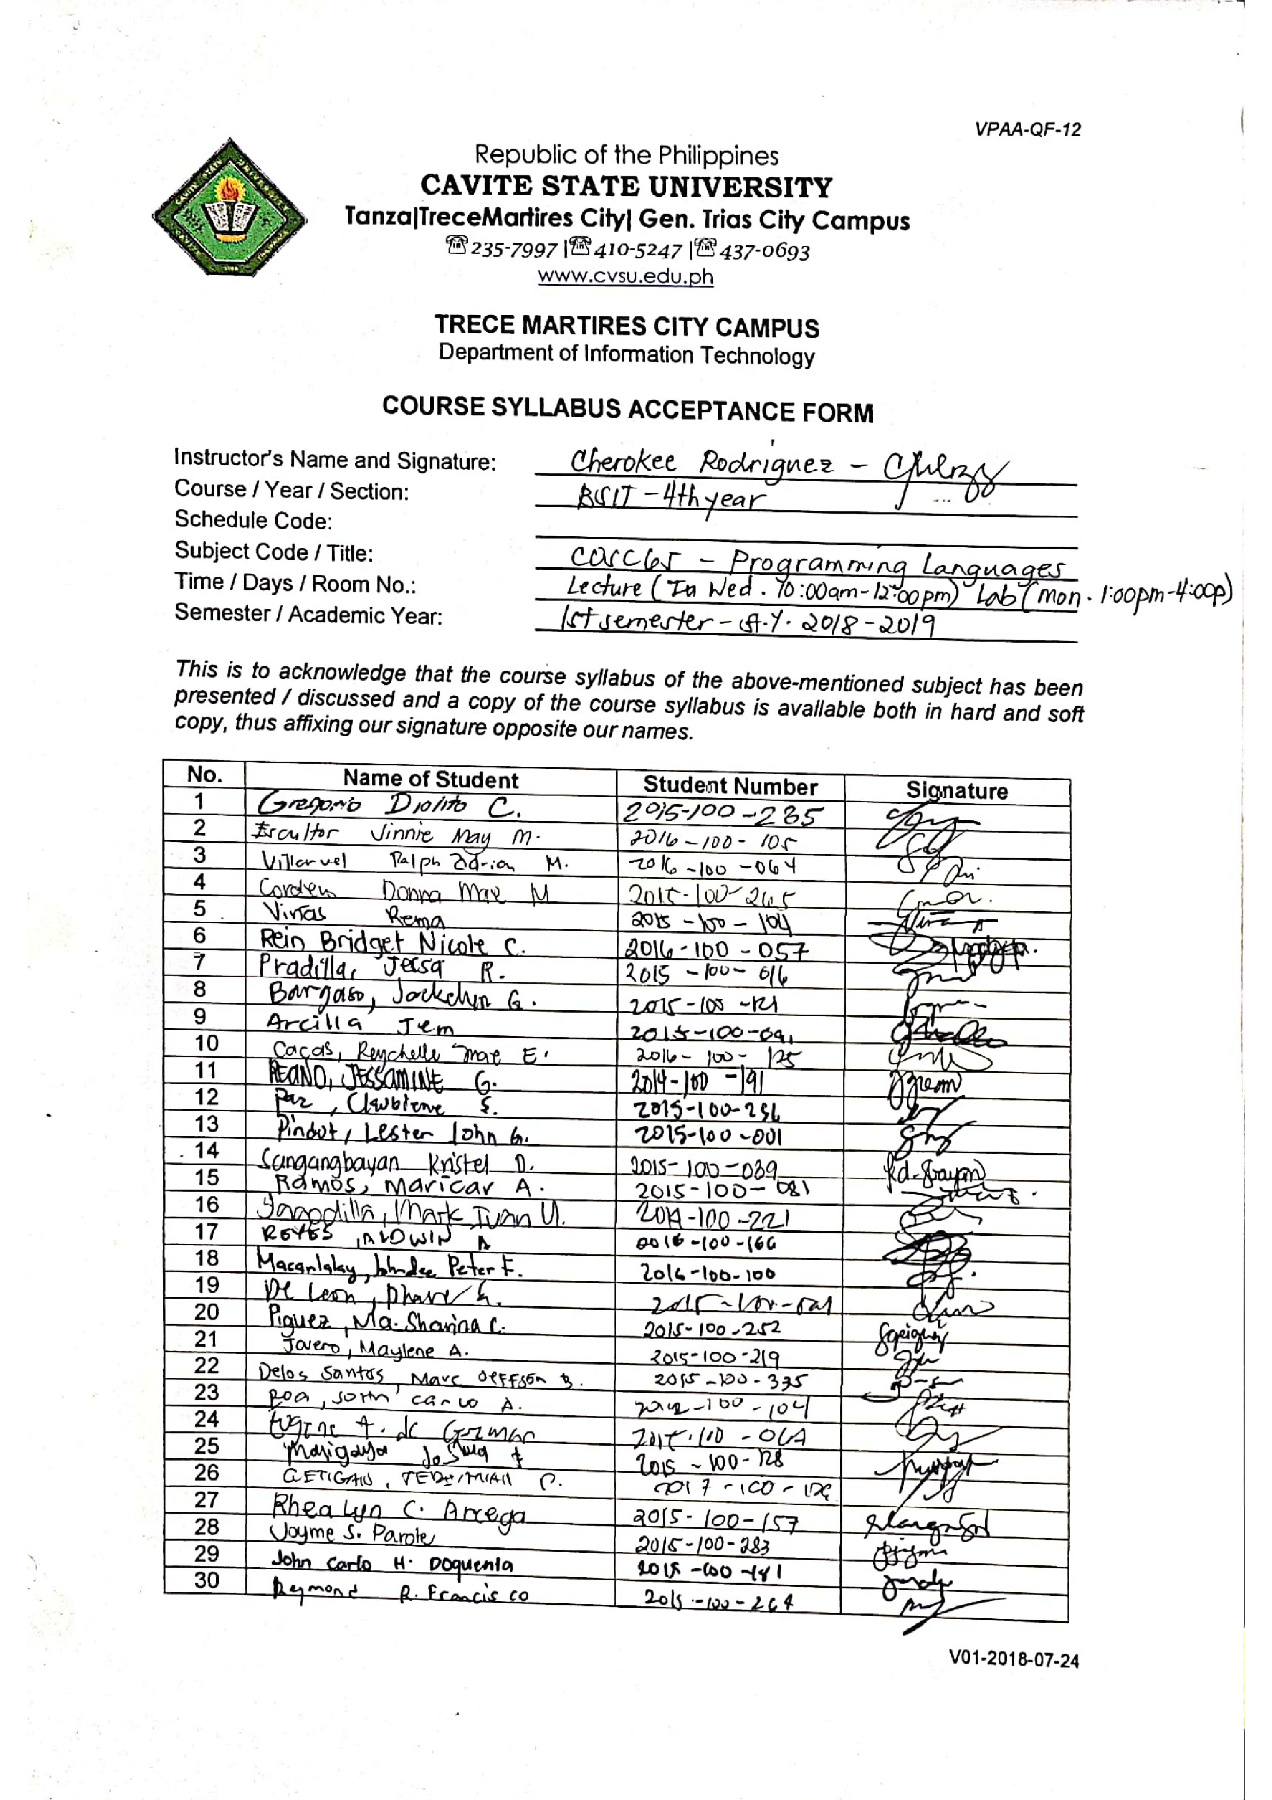 VPAA-QF-12
Republic of the Philippines
CAVITE STATE UNIVERSITY
Tanza|TreceMartires City| Gen. Trias City Campus
☏235-7997 |☏410-5247 |☏437-0693
www.cvsu.edu.ph
TRECE MARTIRES CITY CAMPUS
Department of Information Technology
COURSE SYLLABUS ACCEPTANCE FORM
Instructor's Name and Signature: Cherokee Rodriguez -
Course / Year / Section: BSIT - 4th year
Schedule Code:
Subject Code / Title: COSC65 - Programming Languages
Time / Days / Room No.: Lecture (In Wed. 10:00am-12:00pm) Lab (mon. 1:00pm-4:00p)
Semester / Academic Year: 1st semester - A.Y. 2018-2019
This is to acknowledge that the course syllabus of the above-mentioned subject has been
presented / discussed and a copy of the course syllabus is available both in hard and soft
copy, thus affixing our signature opposite our names.
No. Name of Student Student Number Signature
1 Gregorio Diolito C. 2015-100-285
2 Escultor Jinnie May M. 2016-100-105
3 Villaruel Ralph Adrian M. 2016-100-064
4 Cordero Donna Mae M 2015-100-265
5 Virtas Rema 2015-100-104
6 Rein Bridget Nicole C. 2016-100-057
7 Pradilla, Jessa R. 2015-100-016
8 Bargaso, Jackelyn G. 2015-100-121
9 Arcilla Jem 2015-100-091
10 Cacas, Reychelle Mae E. 2016-100-125
11 REANO, JESSAMINE G. 2014-100-191
12 Paz, S. 2015-100-256
13 Pindot, Lester John G. 2015-100-001
14 Sangangbayan Kristel D. 2015-100-039
15 Ramos, Maricar A. 2015-100-081
16 Mark Ivan U. 2014-100-221
17 REYES, ALDWIN A 2016-100-166
18 Macanlalay, Peter F. 2016-100-100
19 De Leon, G.
20 Piguez, Ma. Sharina C. 2015-100-252
21 Javero, Maylene A. 2015-100-219
22 Delos Santos, Marc Jeffson B. 2015-100-335
23 Roa, John Carlo A. 2012-100-104
24 Eugene A. de Guzman
25 Manigaya Joshua 2015-100-128
26 P.
27 Rhealyn C. Arcega 2015-100-157
28 Jayme S. Parole 2015-100-283
29 John Carlo H. Doquenia 2015-100-181
30 Reymond R. Francisco 2015-100-264
V01-2018-07-24